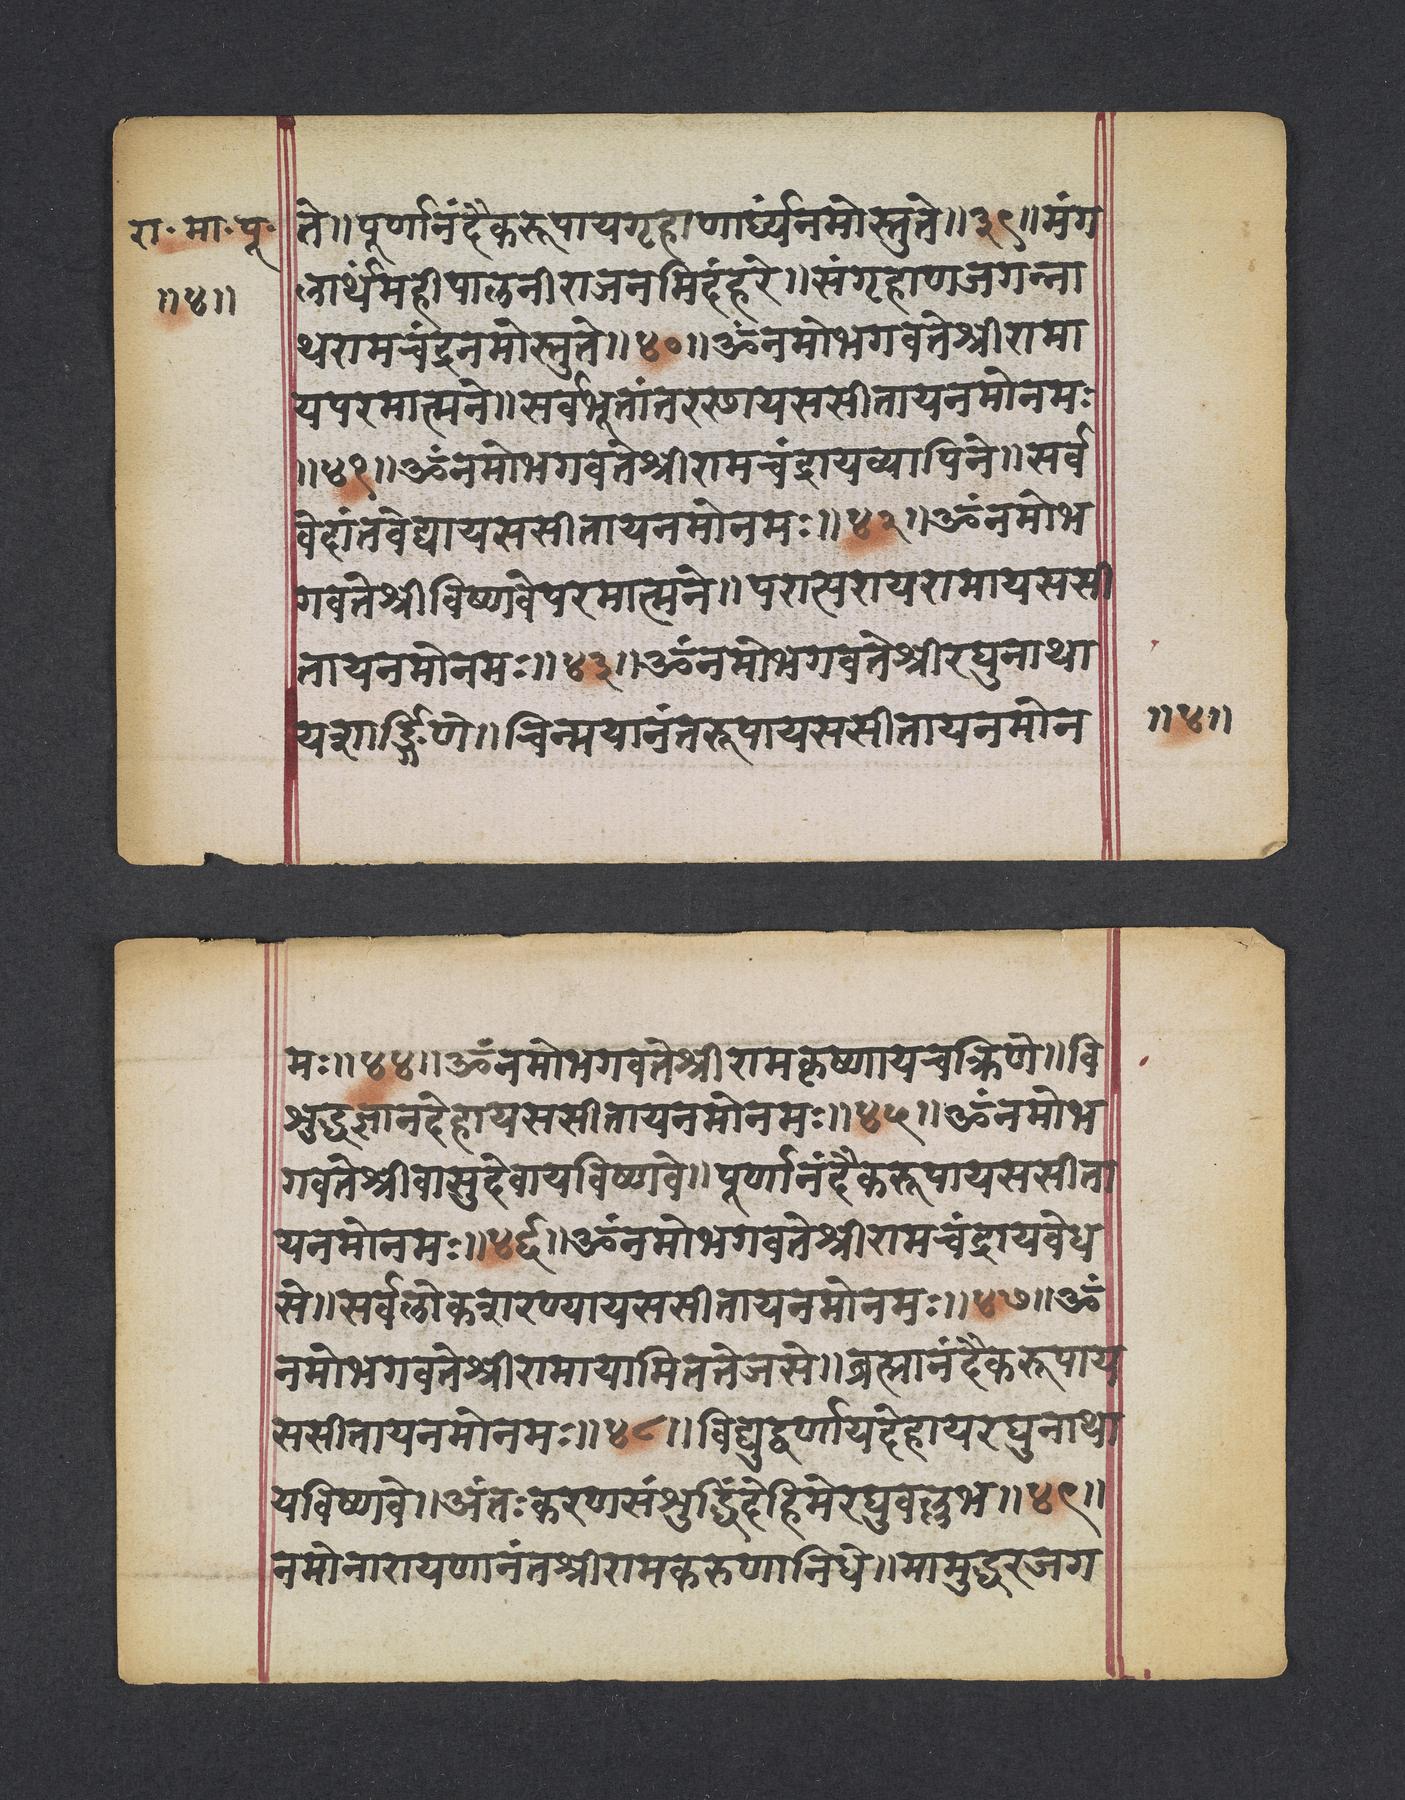 रा॰ मा॰ पू॰
॥४॥
ते॥पूर्णानंदैकरूपायगृहाणार्घ्यंनमोस्तुते॥३९॥मंग
लार्थंमहीपालनीराजनमिदंहरे॥संगृहाणजगन्ना
थरामचंद्रनमोस्तुते॥४०॥ॐनमोभगवतेश्रीरामा
यपरमात्मने॥सर्वभूतांतरस्थायससीतायनमोनमः
॥४१॥ॐनमोभगवतेश्रीरामचंद्रायव्यापिने॥सर्व
वेदांतवेद्यायससीतायनमोनमः॥४२॥ॐनमोभ
गवतेश्रीविष्णवेपरमात्मने॥परात्परायरामायससी
तायनमोनमः॥४३॥ॐनमोभगवतेश्रीरघुनाथा
यशार्ङ्गिणे॥चिन्मयानंतरूपायससीतायनमोन
॥४॥
मः॥४४॥ॐनमोभगवतेश्रीरामकृष्णायचक्रिणे॥वि
शुद्धज्ञानदेहायससीतायनमोनमः॥४५॥ॐनमोभ
गवतेश्रीवासुदेवायविष्णवे॥पूर्णानंदैकरूपायससीता
यनमोनमः॥४६॥ॐनमोभगवतेश्रीरामचंद्रायवेध
से॥सर्वलोकशरण्यायससीतायनमोनमः॥४७॥ॐ
नमोभगवतेश्रीरामायामिततेजसे॥ब्रह्मानंदैकरूपाय
ससीतायनमोनमः॥४८॥विद्युद्वर्णायदेहायरघुनाथा
यविष्णवे॥अंतःकरणसंशुद्धिंदेहिमेरघुवल्लभ॥४९॥
नमोनारायणानंतश्रीरामकरुणानिधे॥मामुद्धरजग